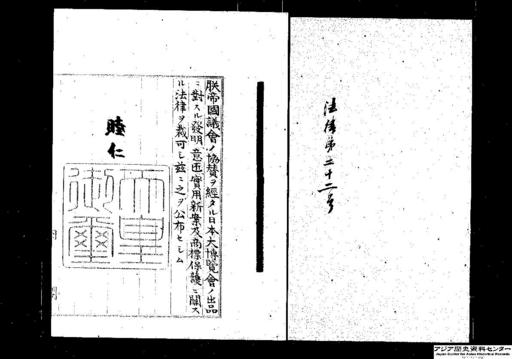 法律第二十二号
朕帝國議會ノ協賛ヲ經タル日本大博覽會ノ出品
ニ對スル發明、意匠、實用新案及商標保護ニ關ス
ル法律ヲ裁可シ茲ニ之ヲ公布セシム
睦仁
天皇
御璽
アジア歴史資料センター
Japan Center for Asian Historical Records